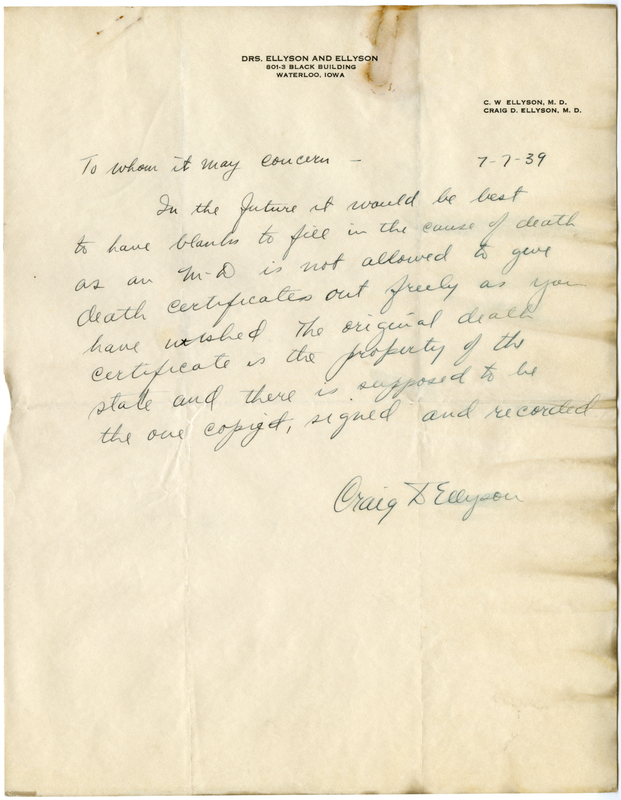 DRS. ELLYSON AND ELLYSON
801-3 BLACK BUILDING
WATERLOO, IOWA
C. W ELLYSON, M. D.
CRAIG D. ELLYSON, M. D.
To whom it may concern — 7-7-39
In the future it would be best
to have blanks to fill in the cause of death
as an M-D is not allowed to give
death certificates out freely as you
have wished The original death
certificate is the property of the
state and there is supposed to be
the one copied, signed and recorded
Craig D Ellyson